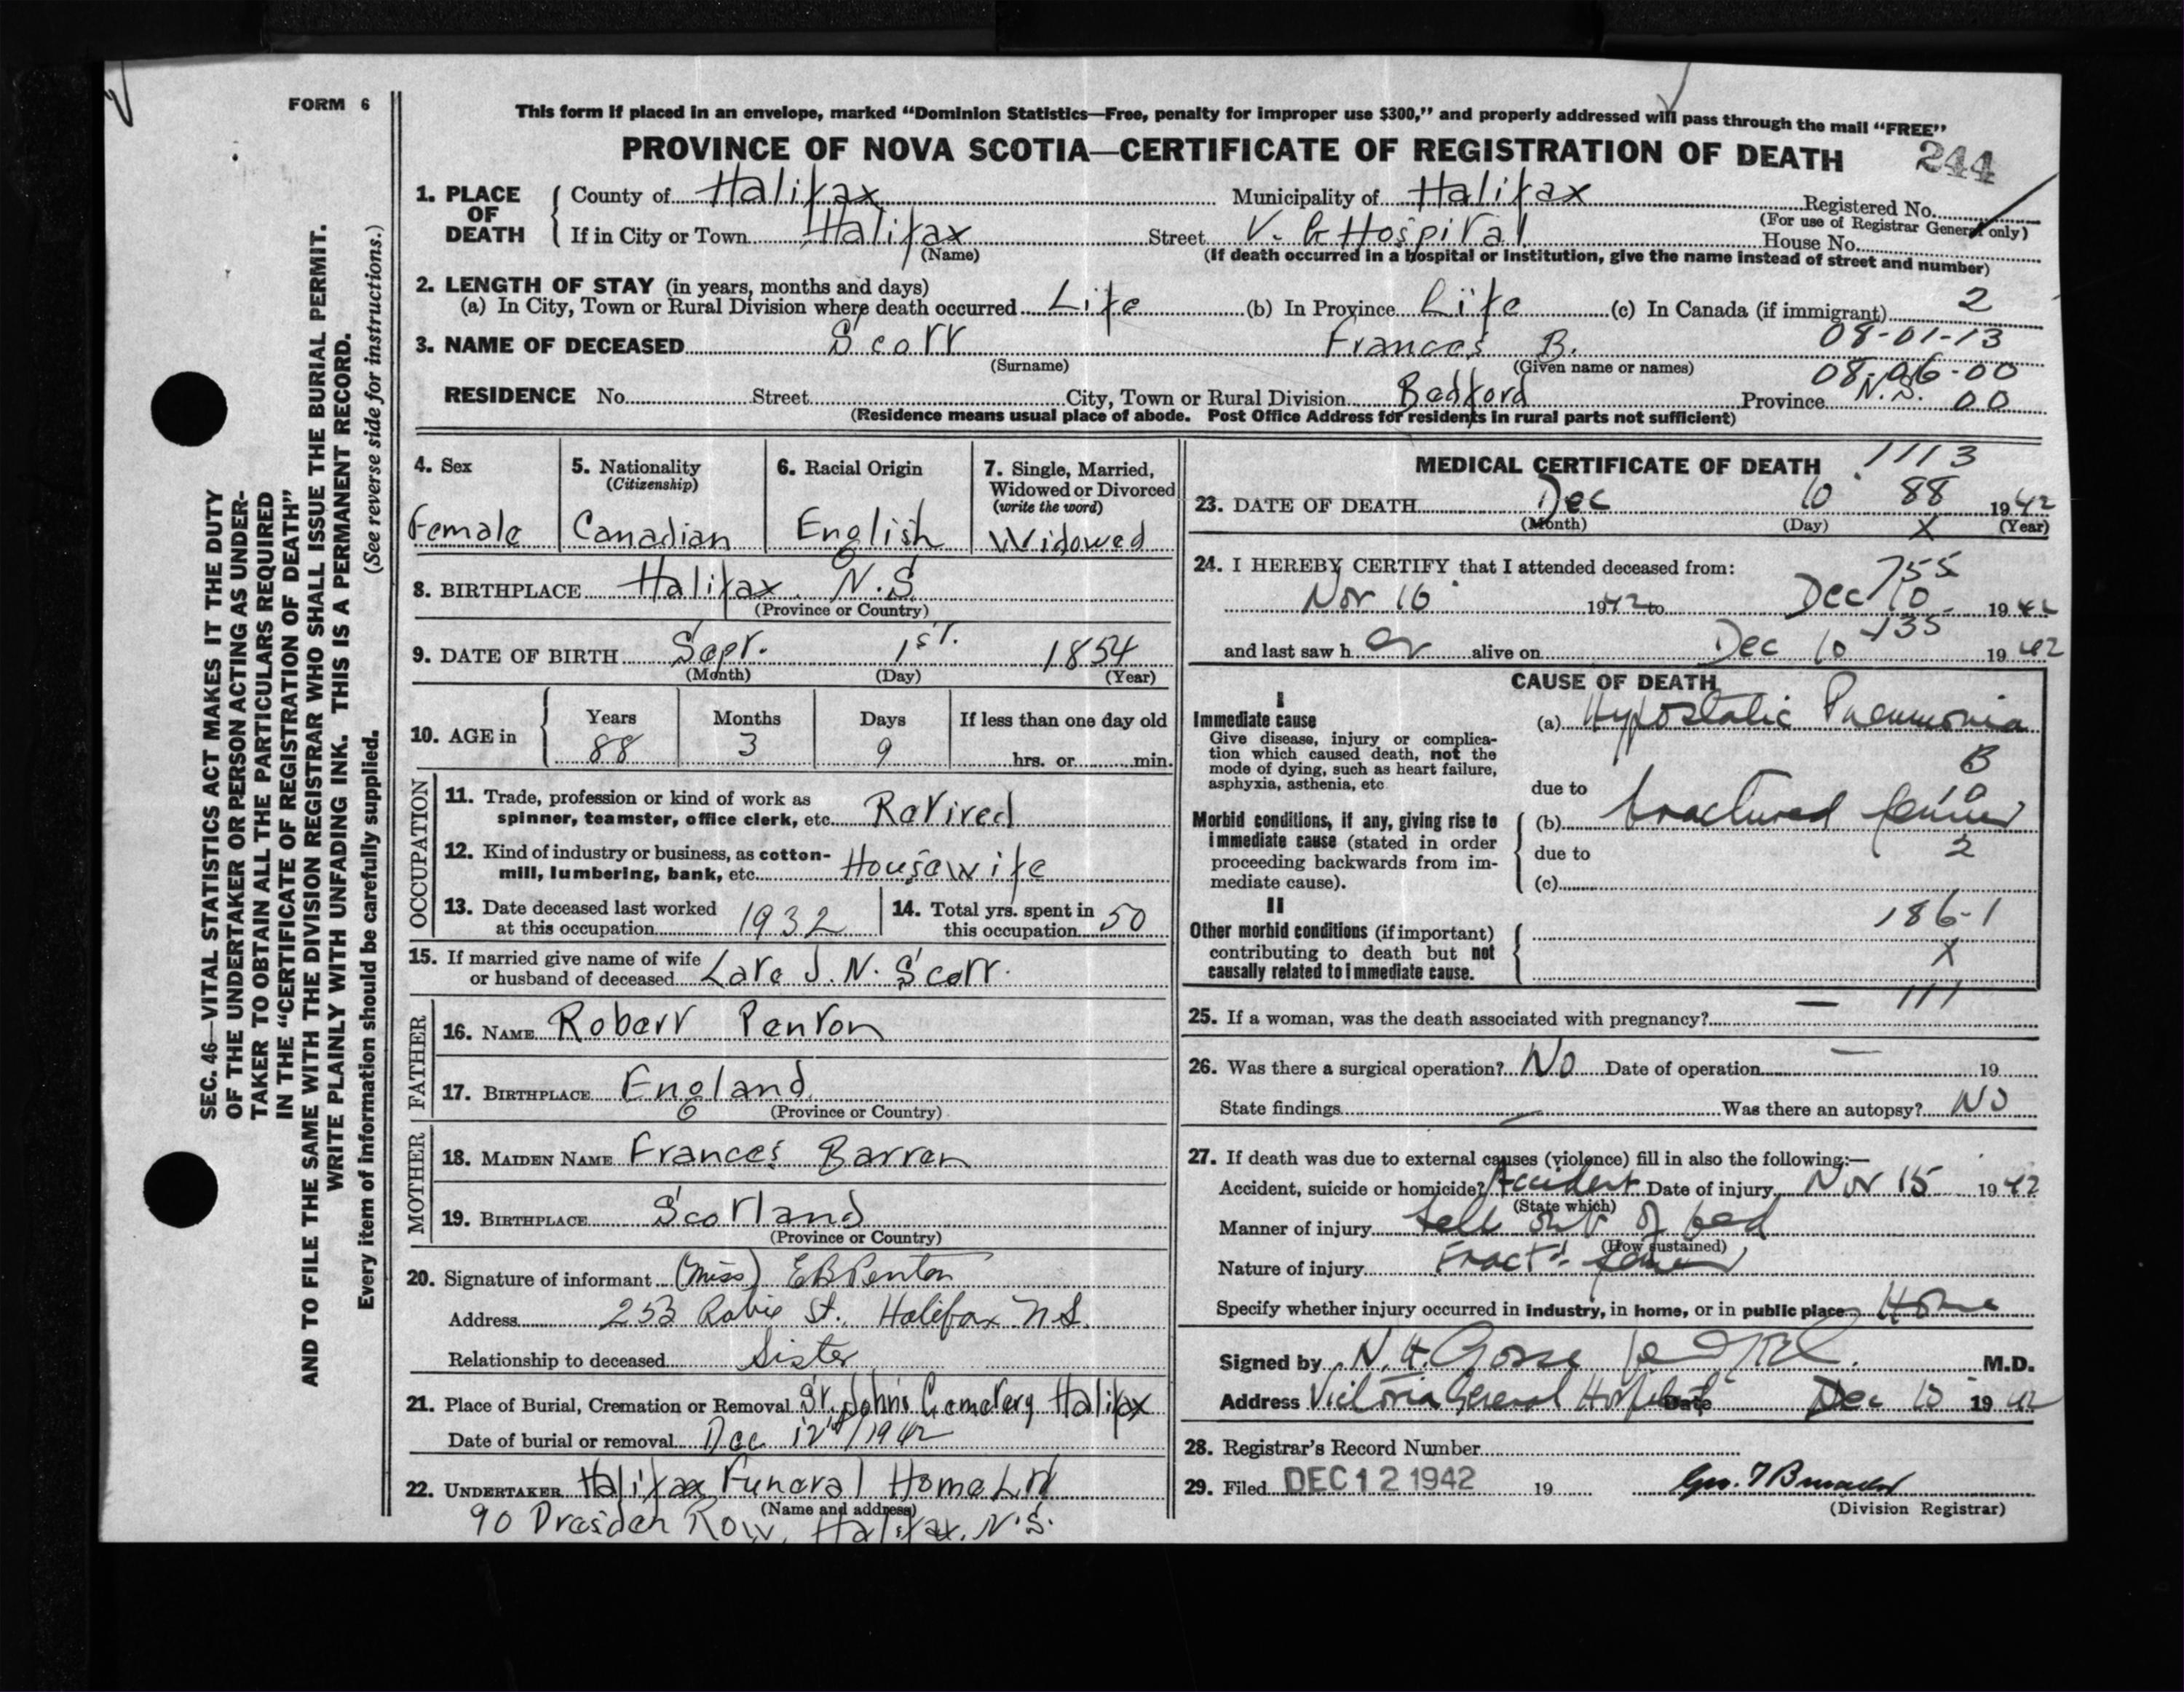 FORM 6
This form if placed in an envelope, marked “Dominion Statistics—Free, penalty for improper use $300,” and properly addressed will pass through the mail “FREE”
PROVINCE OF NOVA SCOTIA—CERTIFICATE OF REGISTRATION OF DEATH 244
1. PLACE OF DEATH
County of Halifax Municipality of Halifax Registered No.
(For use of Registrar General only)
If in City or Town Halifax Street V. G Hospital House No.
(Name) (If death occurred in a hospital or institution, give the name instead of street and number)
2. LENGTH OF STAY (in years, months and days)
(a) In City, Town or Rural Division where death occurred Life (b) In Province Life (c) In Canada (if immigrant) 2
08-01-13
3. NAME OF DECEASED Scott Frances B.
(Surname) (Given name or names)
08-06-00
RESIDENCE No. Street City, Town or Rural Division Bedford Province N.S. 00
(Residence means usual place of abode. Post Office Address for residents in rural parts not sufficient)
SEC. 46—VITAL STATISTICS ACT MAKES IT THE DUTY
OF THE UNDERTAKER OR PERSON ACTING AS UNDER-
TAKER TO OBTAIN ALL THE PARTICULARS REQUIRED
IN THE “CERTIFICATE OF REGISTRATION OF DEATH”
AND TO FILE THE SAME WITH THE DIVISION REGISTRAR WHO SHALL ISSUE THE BURIAL PERMIT.
WRITE PLAINLY WITH UNFADING INK. THIS IS A PERMANENT RECORD.
Every item of information should be carefully supplied. (See reverse side for instructions.)
4. Sex
Female
5. Nationality
(Citizenship)
Canadian
6. Racial Origin
English
7. Single, Married,
Widowed or Divorced
(write the word)
Widowed
8. BIRTHPLACE Halifax. N.S.
(Province or Country)
9. DATE OF BIRTH Sept. 1st. 1854
(Month) (Day) (Year)
10. AGE in
Years Months Days If less than one day old
88 3 9 hrs. or min.
OCCUPATION
11. Trade, profession or kind of work as
spinner, teamster, office clerk, etc. Retired
12. Kind of industry or business, as cotton-
mill, lumbering, bank, etc. Housewife
13. Date deceased last worked
at this occupation 1932
14. Total yrs. spent in
this occupation 50
15. If married give name of wife
or husband of deceased Late J. N. Scott.
FATHER
16. NAME Robert Penton
17. BIRTHPLACE England
(Province or Country)
MOTHER
18. MAIDEN NAME Frances Barren
19. BIRTHPLACE Scotland
(Province or Country)
20. Signature of informant (Miss) E B Penton
Address 253 Robie St. Halifax N.S.
Relationship to deceased Sister
21. Place of Burial, Cremation or Removal St. John's Cemetery Halifax
Date of burial or removal Dec 12th/1942
22. UNDERTAKER Halifax Funeral Home Ltd
(Name and address)
90 Dresden Row, Halifax. N.S.
MEDICAL CERTIFICATE OF DEATH 1113
23. DATE OF DEATH Dec 10 88 1942
(Month) (Day) X (Year)
24. I HEREBY CERTIFY that I attended deceased from: 755
Nov 16 1942 to Dec 10 1942
135
and last saw her alive on Dec 10 1942
CAUSE OF DEATH
I
Immediate cause
Give disease, injury or complica-
tion which caused death, not the
mode of dying, such as heart failure,
asphyxia, asthenia, etc
(a) Hypostatic Pneumonia
B
due to 10
Morbid conditions, if any, giving rise to
immediate cause (stated in order
proceeding backwards from im-
mediate cause).
(b) fractured femur
due to 2
(c)
II
Other morbid conditions (if important)
contributing to death but not
causally related to immediate cause.
186-1
X
111
25. If a woman, was the death associated with pregnancy? —
26. Was there a surgical operation? No Date of operation — 19
State findings — Was there an autopsy? No
27. If death was due to external causes (violence) fill in also the following:—
Accident, suicide or homicide? Accident Date of injury Nov 15 1942
(State which)
Manner of injury fell out of bed
(How sustained)
Nature of injury Fract'd femur
Specify whether injury occurred in industry, in home, or in public place Home
Signed by N. H. Gosse M.D.
Address Victoria General Hospital Date Dec 10 1942
28. Registrar's Record Number
29. Filed DEC 12 1942 19
(Division Registrar)